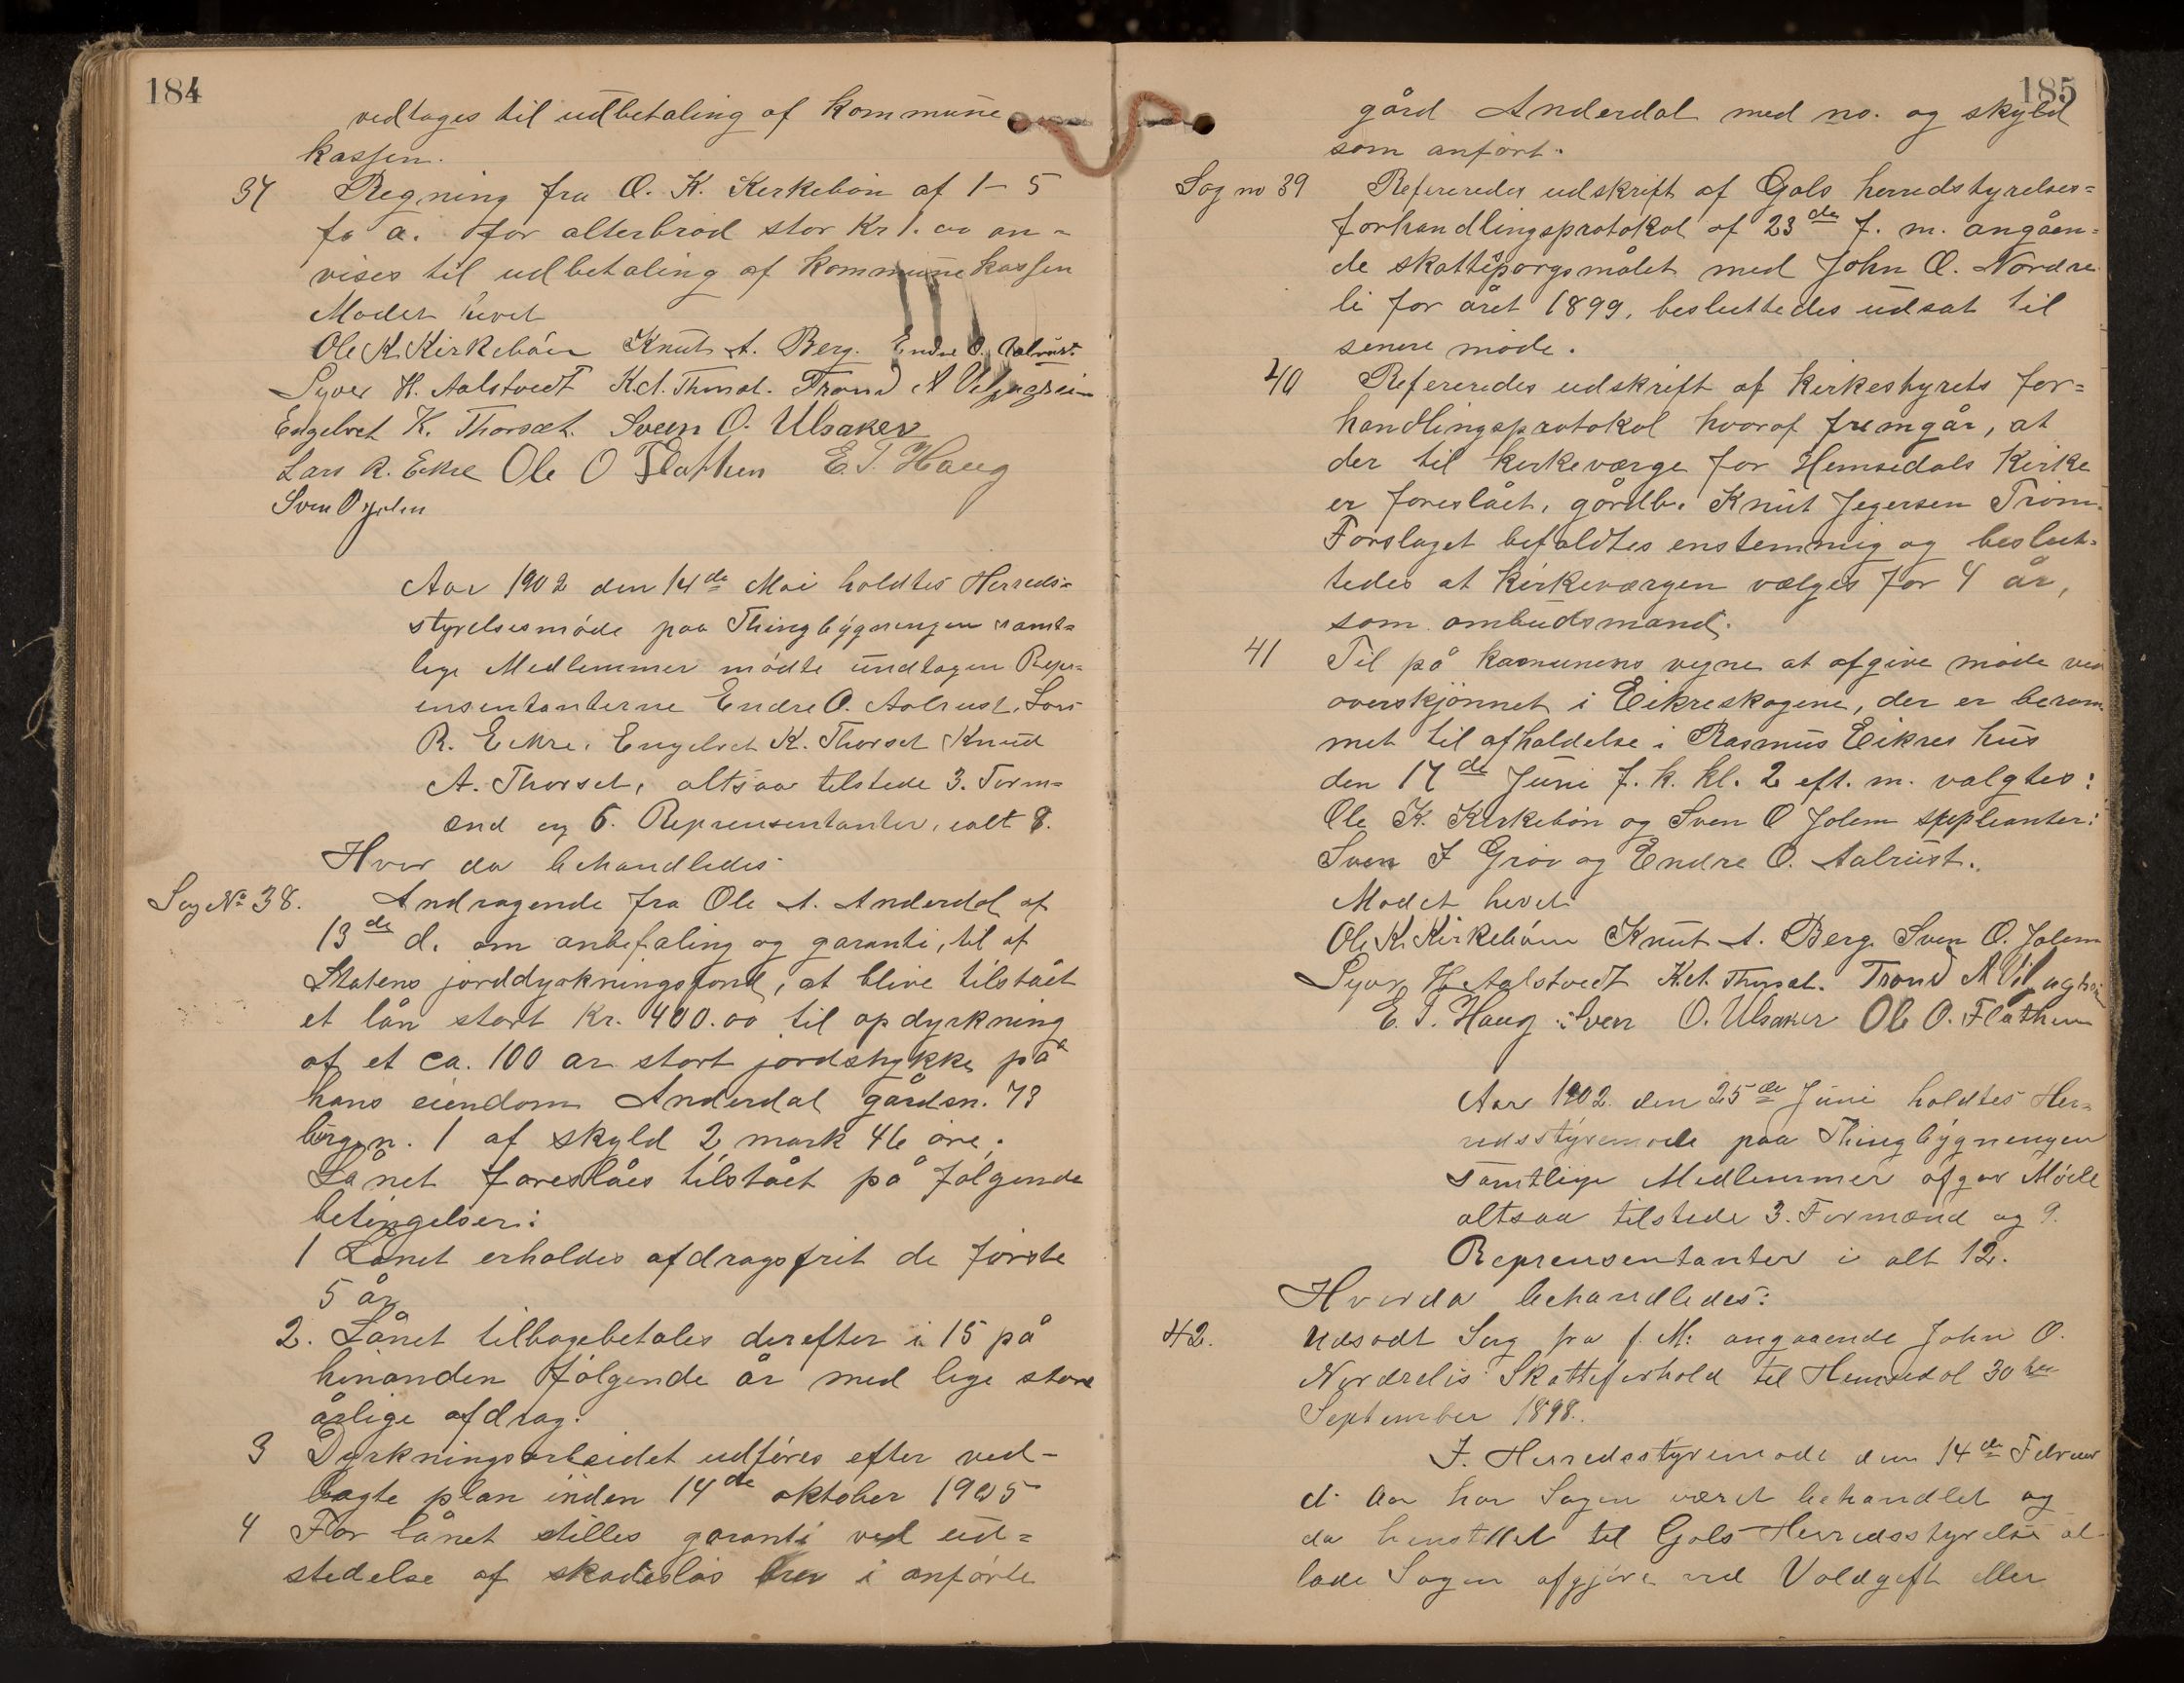 184
vedtages til udbetaling af kommune
kassen.
37 Regning fra O. K. Kirkebön af 1-5
fo a. for alterbröd stor Kr 1.00 an=
vises til udbetaling af kommunekassen
Mödet hevet
Ole K. Kirkeböen Knut A. Berg. Endre O. Aalrust.
Syver H. Aalstvedt K.A. Thorset. Trond A
Engebret K. Thorset. Sven O. Ulsaker
Lars R. Eikre Ole O Flathen E. T. Haug
Sven O Jolen
Aar 1902 den 14de Mai holdtes Herreds=
styrelsesmöde paa Thingbygningen samt=
lige Medlemmer mödte undtagen Repr=
ensentanterne Endre O. Aalrust, Lars
R. Eikre, Engebret K. Thorset Knud
A. Thorset, altsaa tilstede 3. Form=
ænd og 6. Reprensentanter, ialt 8.
Hvor da behandledes
Sag No 38. Andragende fra Ole A. Anderdal af
13de d. om anbefaling og garanti, til af
Statens jorddyrkningsfond, at blive tilstået
et lån stort Kr. 400.00 til opdyrkning
af et ca. 100 ar stort jordstykke på
hans eiendom Anderdal gårdsn. 73
brugsn. 1 af skyld 2 mark 46 öre.
Lånet foreslåes tilstået på fölgende
betingelser:
1 Lånet erholdes afdragsfrit de förste
5 år
2. Lånet tilbagebetales derefter i 15 på
hinanden fölgende år med lige store
årlige afdrag.
3 Dyrkningsarbeidet udföres efter ved-
lagte plan inden 14de oktober 1905
4 For lånet stilles garanti ved ud=
stedelse af skadeslös brev i anförte
185
gård Anderdal med no. og skyld
som anfört.
Sag no 39 Refereredes udskrift af Gols herredstyrelses=
forhandlingsprotokol af 23de f. m. angåen=
de skattespörgsmålet med John O. Nordre
li for året 1899, besluttedes udsat til
senere möde.
40 Refereredes udskrift af kirkestyrets for=
handlingsprotokol hvoraf fremgår, at
der til kirkeværge for Hemsedals Kirke
er foreslået, gårdbr. Knut Jegersen Tröm.
Forslaget bifaldtes enstemmig og beslut=
tedes at kirkeværgen vælges for 4 år,
som ombudsmand.
41 Til på kommunens vegne at afgive möde ved
overskjönnet i Eikreskogene, der er beram
met til afholdelse i Rasmus Eikres hus
den 17de Juni f. k. kl. 2 eft. m. valgtes:
Ole K. Kirkebön og Sven O Jolem suppleanter:
Sven I Gröv og Endre O. Aalrust.
Mödet hevet
Ole K. Kirkeböen Knut A. Berg. Sven O. Jolem
Syver H. Aalstvedt K.A. Thorset. Trond A
E. T. Haug Sven O. Ulsaker Ole O. Flathen
Aar 1902 den 25de Juni holdtes Her=
redsstyremöde paa Thingbygningen
samtlige Medlemmer afgav Möde
altsaa tilstede 3. Formænd og 9.
Reprensentanter i alt 12.
Hvorda behandledes:
42. Udsadt Sag fra f. M. angaaende John O.
Nordrelis Skatteforhold til Hemsedal 30te
September 1898.
I. Herredsstyremöde den 14de Februar
d. Aar har Sagen været behandlet og
da henstillet til Gols Herredsstyrelse at
lade Sagen afgjöre ved Voldgift eller